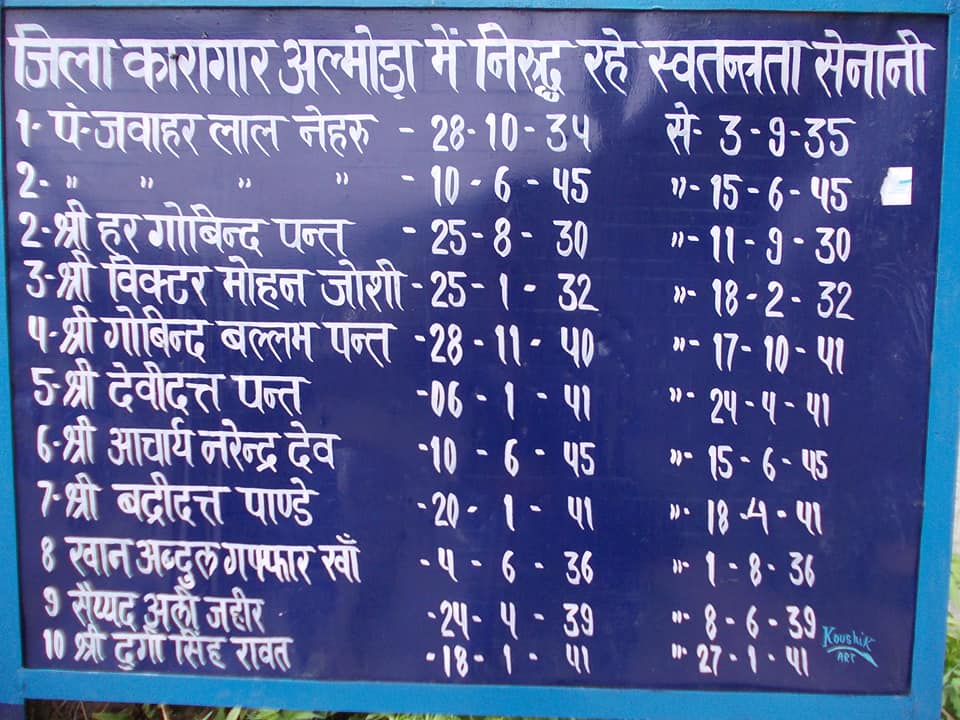 जिला कारागार अल्मोड़ा में निरुद्ध रहे स्वतन्त्रता सेनानी
1- पं-जवाहर लाल नेहरु - 28-10-34 से- 3-9-35
2- " " " " - 10-6-45 "- 15-6-45
2-श्री हर गोबिन्द पन्त - 25-8-30 "- 11-9-30
3-श्री विक्टर मोहन जोशी - 25-1-32 "- 18-2-32
4-श्री गोबिन्द बल्लभ पन्त - 28-11-40 "- 17-10-41
5-श्री देवीदत्त पन्त - 06-1-41 "- 24-4-41
6-श्री आचार्य नरेन्द्र देव - 10-6-45 "- 15-6-45
7-श्री बद्रीदत्त पाण्डे - 20-1-41 "- 18-4-41
8 खान अब्दुल गफ्फार खाँ - 4-6-36 "- 1-8-36
9 सैय्यद अली जहीर - 24-4-39 "- 8-6-39
10 श्री दुर्गा सिंह रावत - 18-1-41 " 27-1-41
Koushik
ART